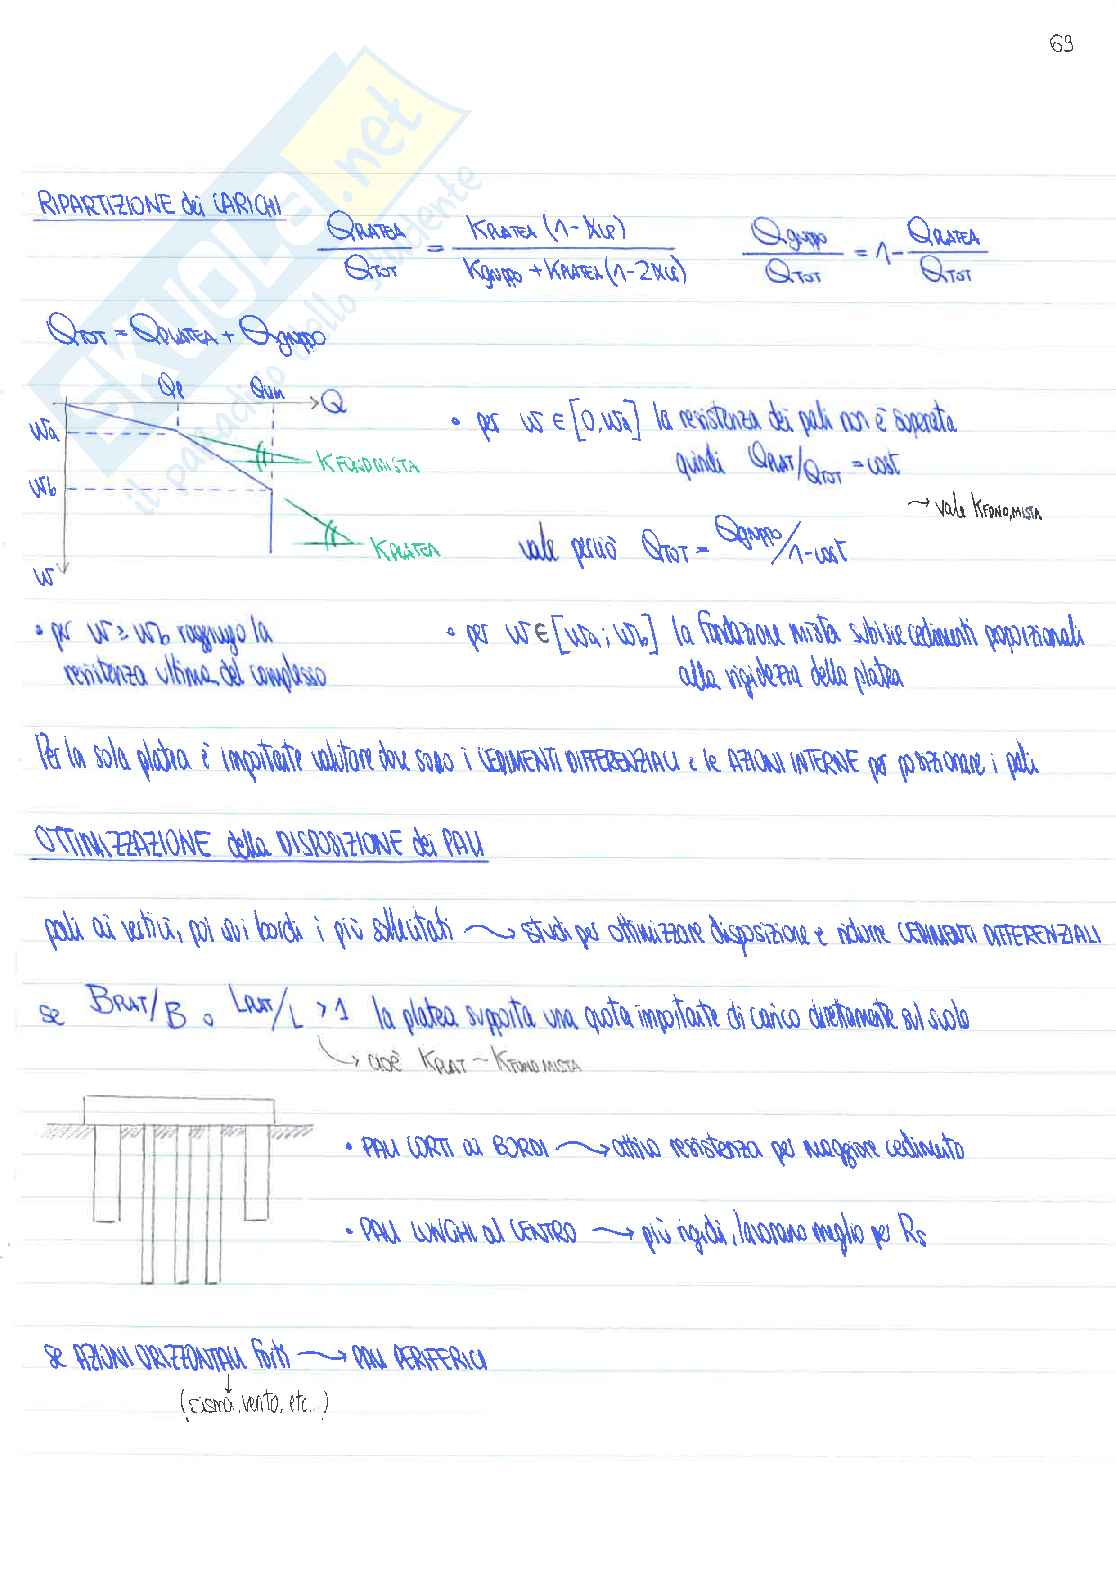 69
RIPARTIZIONE dei CARICHI
QPLATEA / QTOT = KPLATEA (1-αcp) / Kgruppo + KPLATEA (1-2αcp)
Qgruppo / QTOT = 1 - QPLATEA / QTOT
QTOT = QPLATEA + Qgruppo
Qp Qlim Q
wa
wb
w
KFOND MISTA
KPLATEA
• per w ∈ [0, wa] la resistenza dei pali non è superata
quindi QPLAT/QTOT = cost
→ vale KFOND, MISTA
vale perciò QTOT = Qgruppo/1-cost
• per w ≥ wb raggiungo la
resistenza ultima del complesso
• per w ∈ [wa ; wb] la fondazione mista subisce cedimenti proporzionali
alla rigidezza della platea
Per la sola platea è importante valutare dove sono i CEDIMENTI DIFFERENZIALI e le AZIONI INTERNE per posizionare i pali
OTTIMIZZAZIONE della DISPOSIZIONE dei PALI
pali ai vertici, poi sui bordi i più sollecitati → studi per ottimizzare disposizione e ridurre CEDIMENTI DIFFERENZIALI
se BPLAT/B o LPLAT/L > 1 la platea supporta una quota importante di carico direttamente sul suolo
→ cioè KPLAT ~ KFOND MISTA
• PALI CORTI ai BORDI → attiva resistenza per maggiore cedimento
• PALI LUNGHI al CENTRO → più rigidi, lavorano meglio per Rs
se AZIONI ORIZZONTALI forti → PALI PERIFERICI
(sisma, vento, etc..)
SKUOLA.net
il paradiso dello studente